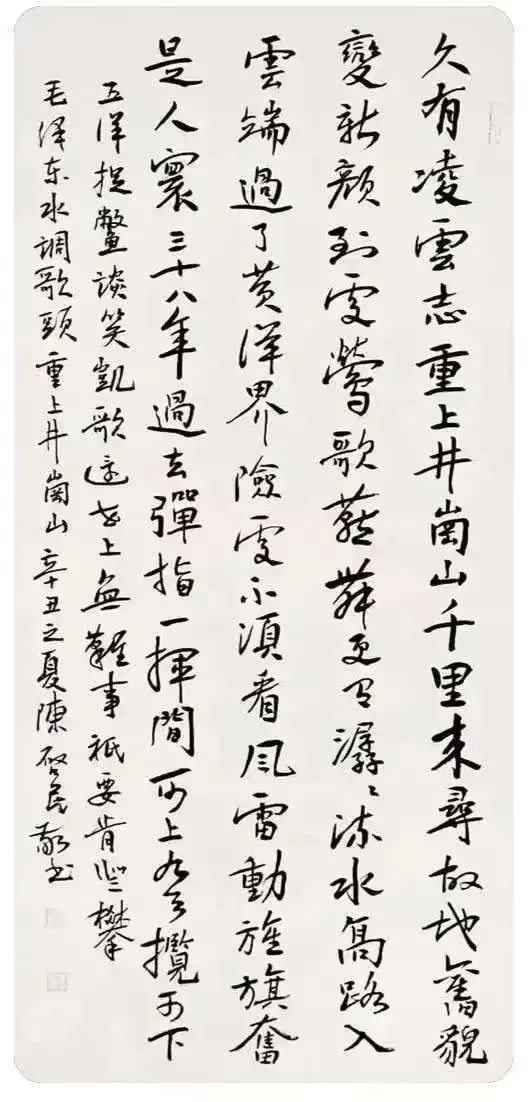 久有凌雲志重上井崗山千里来尋故地舊貌
變新顏到處鶯歌燕舞更有潺〻流水高路入
雲端過了黄洋界險處不須看風雷動旌旗奮
是人寰三十八年過去彈指一揮間可上九天攬可下
五洋捉鱉談笑凱歌還世上無難事衹要肯登攀
毛泽东水調歌頭重上井崗山辛丑之夏陳啓民敬书